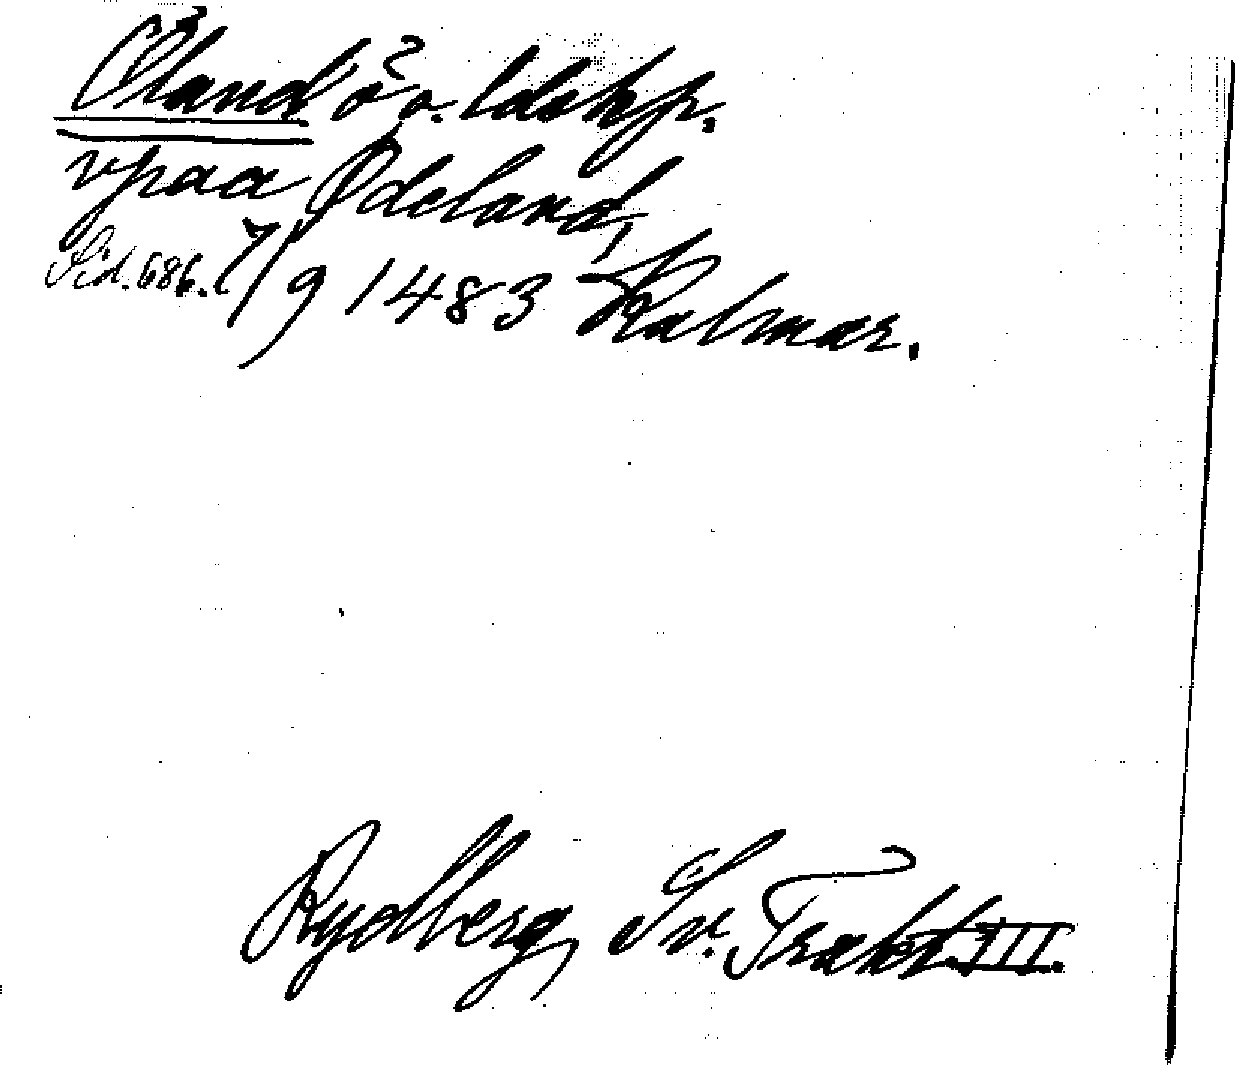 Öland ö o. ldskp.
vpaa Ødeland,
Sid. 686. 7/9 1483 Kalmar.
Rydberg, Sv. Trakt. III.